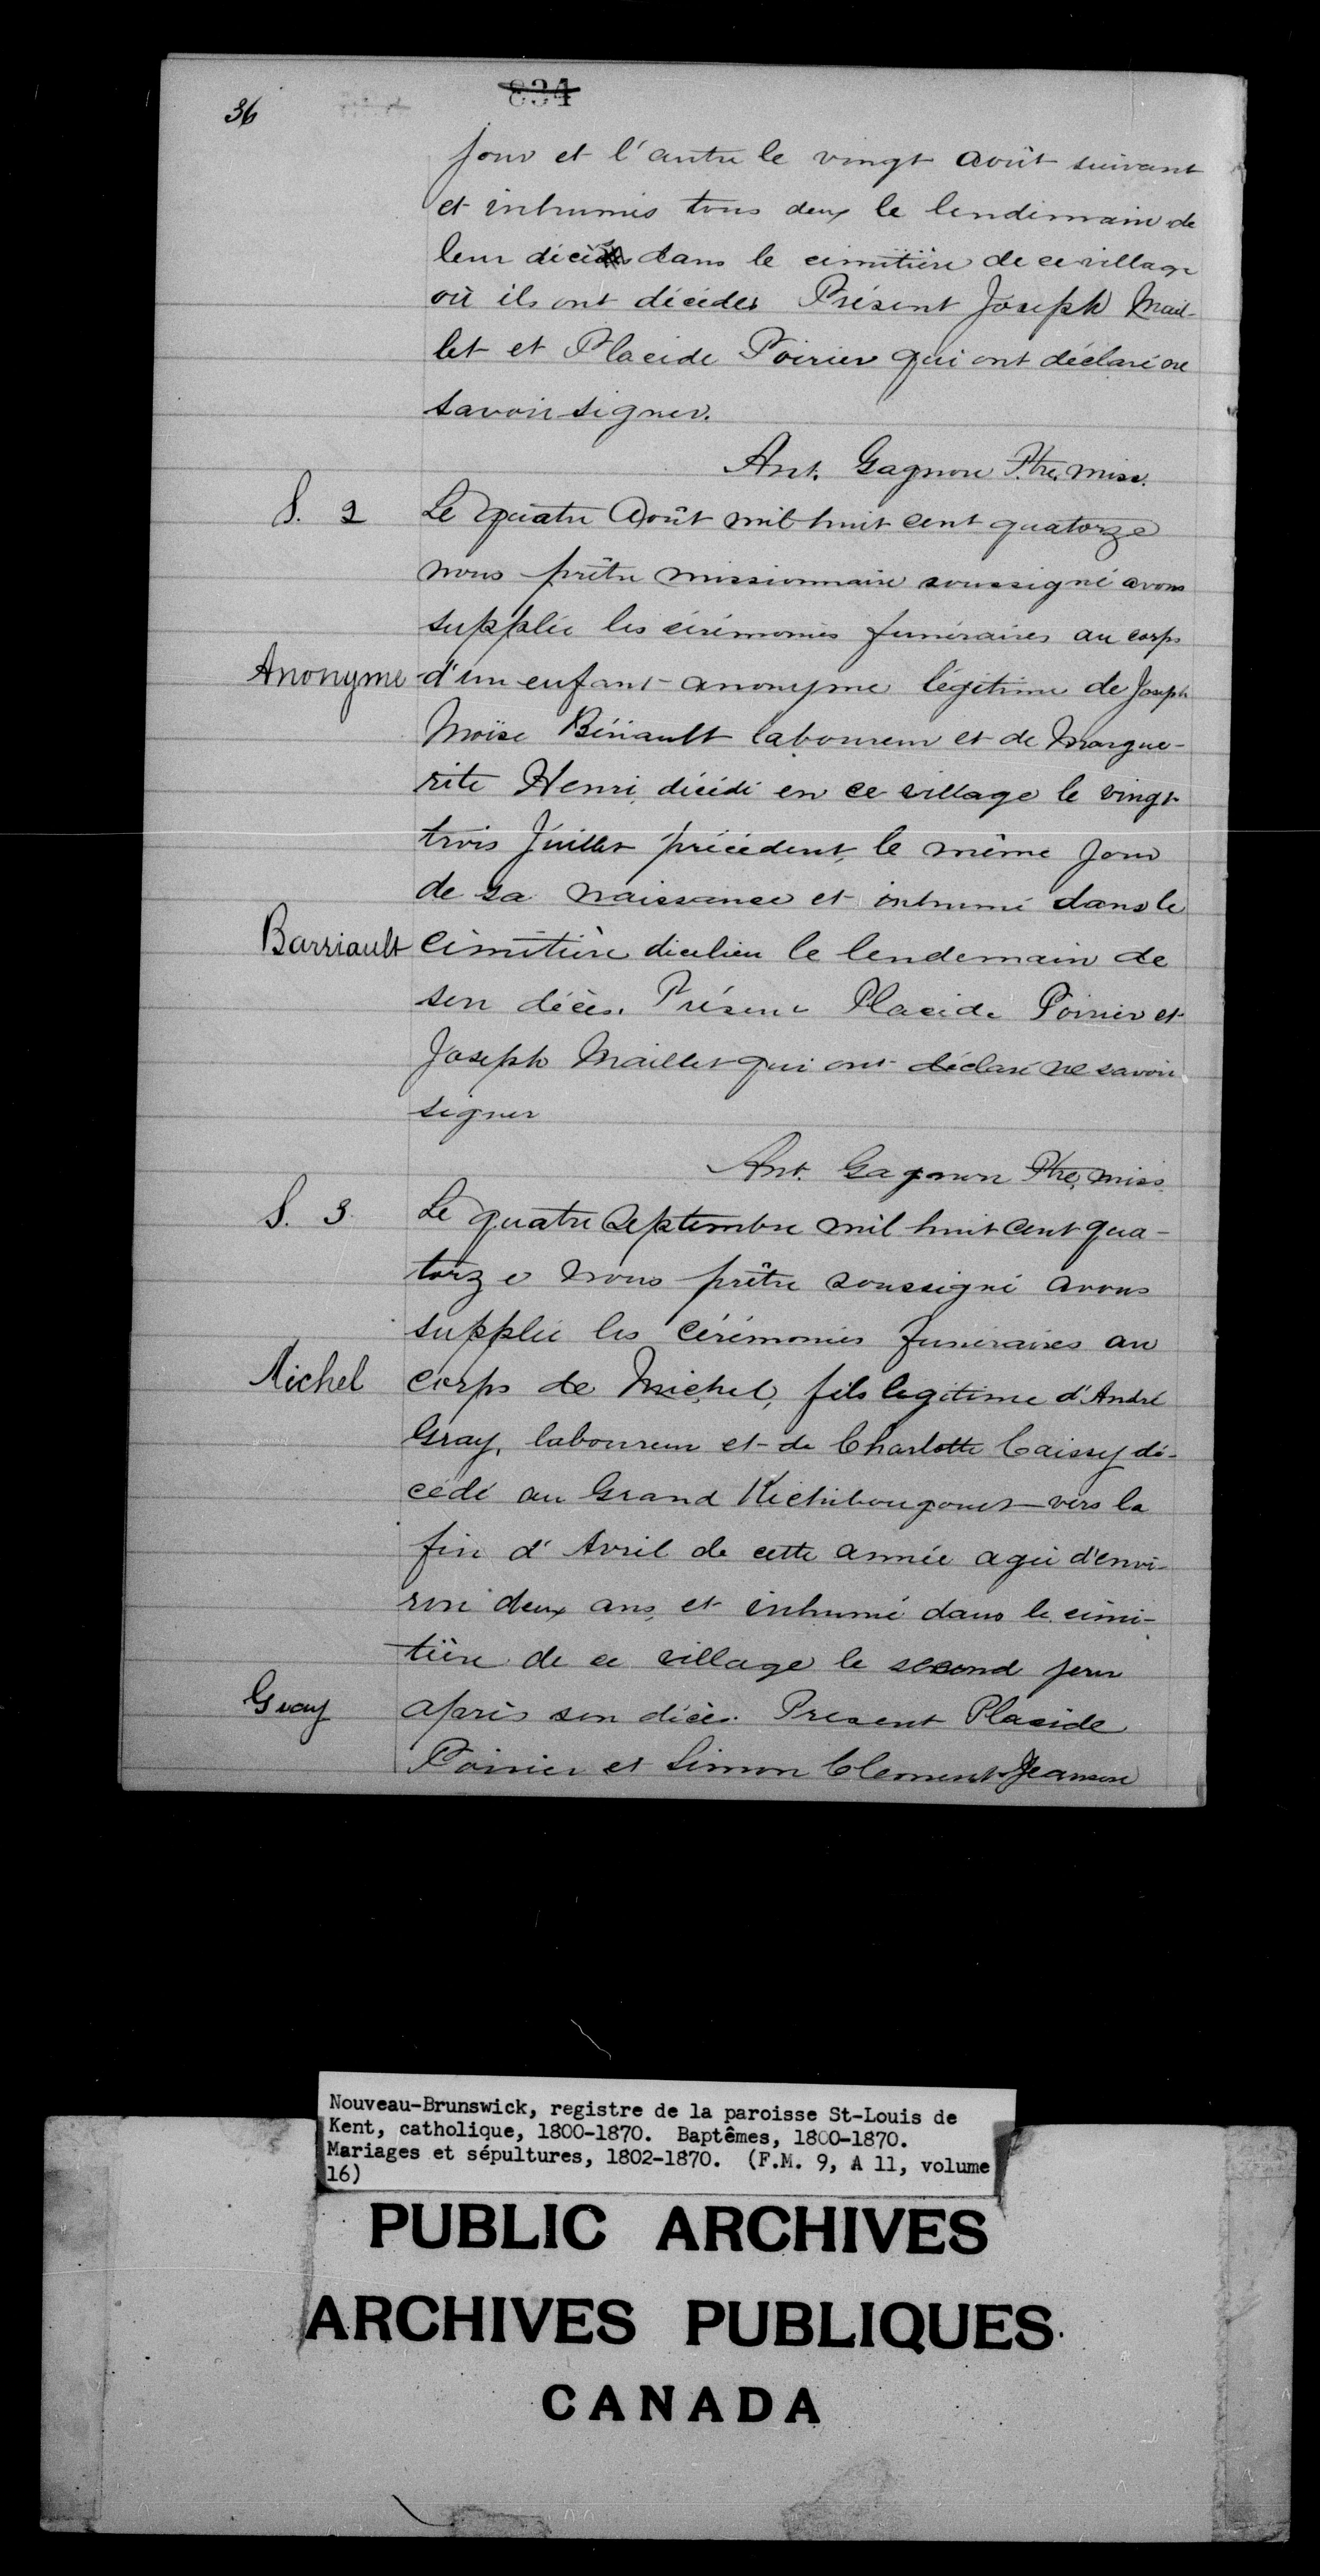 36
834
jour et l'autre le vingt août suivant
et inhumés tous deux le lendemain de
leur décès dans le cimitière de ce village
où ils ont décédés Présent Joseph Mail-
let et Placide Poirier qui ont déclaré ne
savoir signer.
Ant. Gagnon Ptre, miss.
S. 2
Le quatre Août mil huit cent quatorze
nous prêtre missionnaire soussigné avons
supplée les cérémonies funéraires au corps
Anonyme d'un enfant anonyme légitime de Joseph
Moïse Bériault laboureur et de Margue-
rite Henri, décédé en ce village le vingt
trois Juillet précédent, le même jour
de sa naissance et inhumé dans le
Barriault cimitière dicelieu le lendemain de
son décès. Présent Placide Poirier et
Joseph Maillet qui ont déclaré ne savoir
signer
Ant. Gagnon Ptre, miss.
S. 3.
Le quatre Septembre mil huit cent qua-
torze nous prêtre soussigné avons
supplée les cérémonies funéraires au
Michel corps de Michel, fils legitime d'André
Gray, laboureur et de Charlotte Caissy dé-
cédé au Grand Richibougouet vers la
fin d'Avril de cette année agée d'envi-
ron deux ans, et inhumé dans le cimi-
tière de ce village le second jour
Guay après son décès. Present Placide
Poirier et Simon Clement Jeanson
Nouveau-Brunswick, registre de la paroisse St-Louis de
Kent, catholique, 1800-1870. Baptêmes, 1800-1870.
Mariages et sépultures, 1802-1870. (F.M. 9, A 11, volume
16)
PUBLIC ARCHIVES
ARCHIVES PUBLIQUES
CANADA